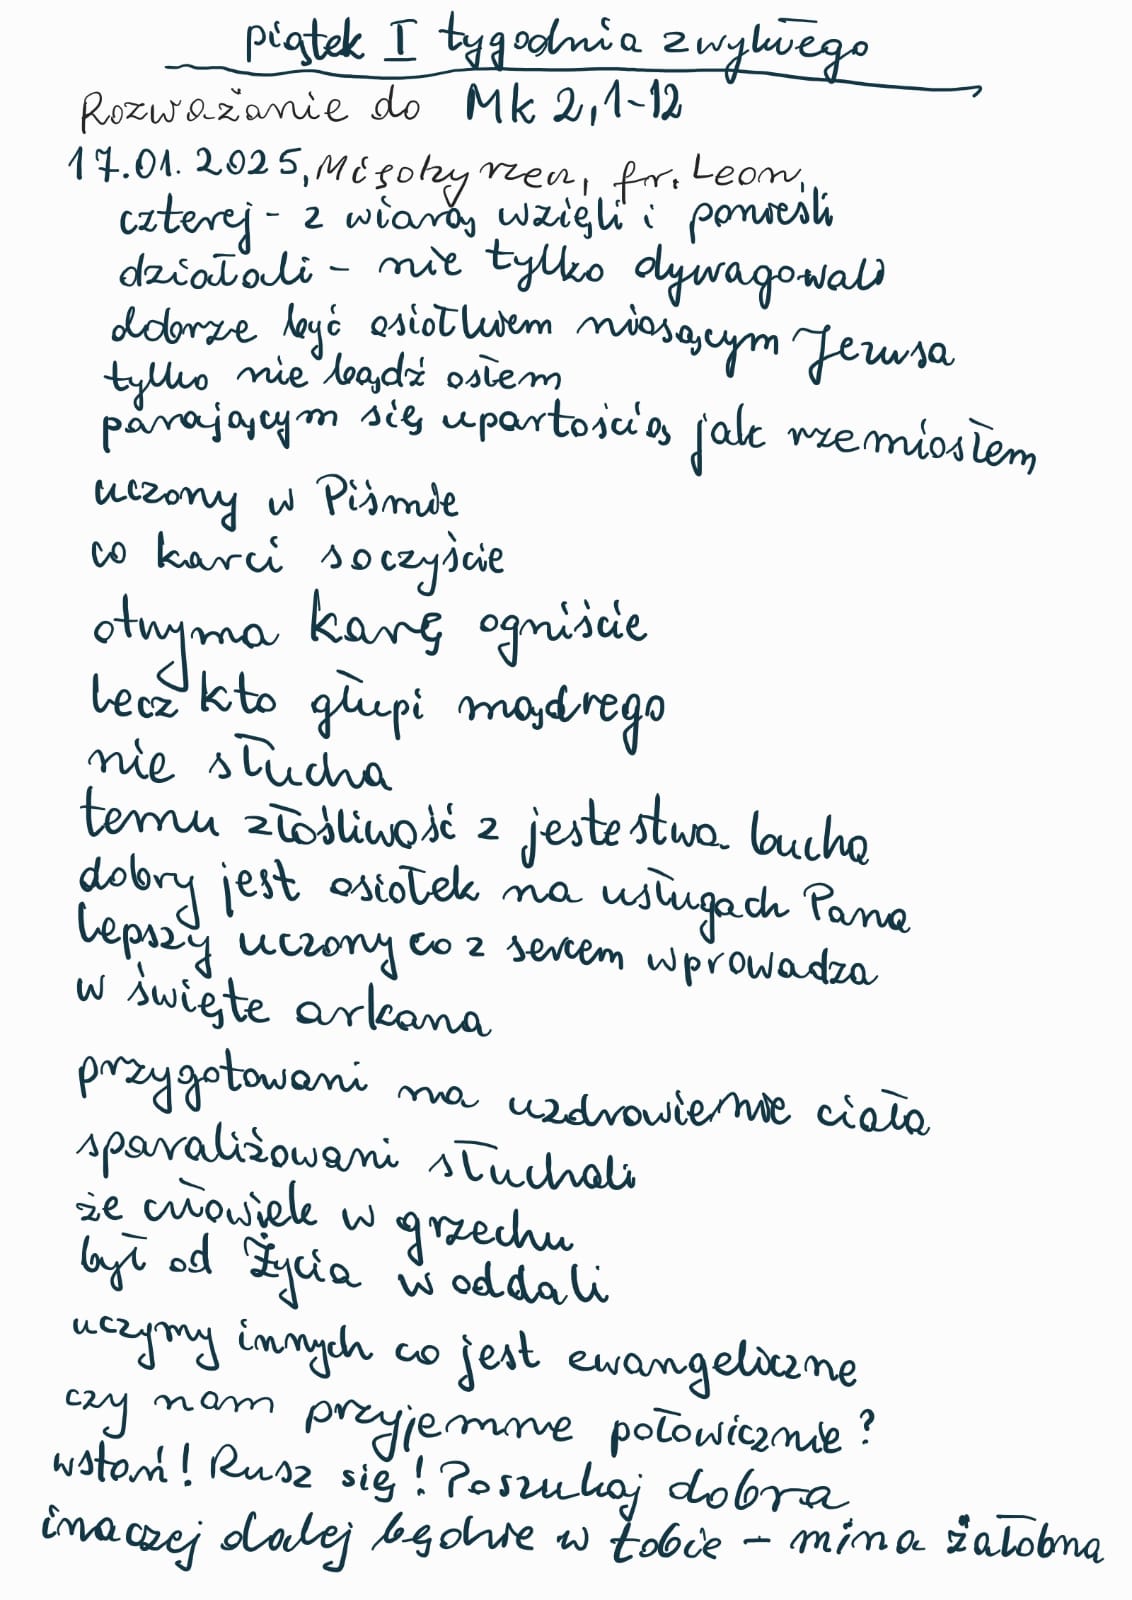 piątek I tygodnia zwykłego
Rozważanie do Mk 2,1-12
17.01.2025, Międzyrzecz, fr. Leon,
czterej - z wiarą wzięli i ponieśli
działali - nie tylko dywagowali
dobrze być osiołkiem niosącym Jezusa
tylko nie bądź osłem
parającym się upartością jak rzemiosłem
uczony w Piśmie
co karci soczyście
otrzyma karę ogniście
lecz kto głupi mądrego
nie słucha
temu złośliwość z jestestwa bucha
dobry jest osiołek na usługach Pana
lepszy uczony co z sercem wprowadza
w święte arkana
przygotowani na uzdrowienie ciała
sparaliżowani słuchali
że człowiek w grzechu
był od Życia w oddali
uczymy innych co jest ewangeliczne
czy nam przyjemne połowicznie?
wstań! Rusz się! Poszukaj dobra
inaczej dalej będzie w tobie - mina żałobna